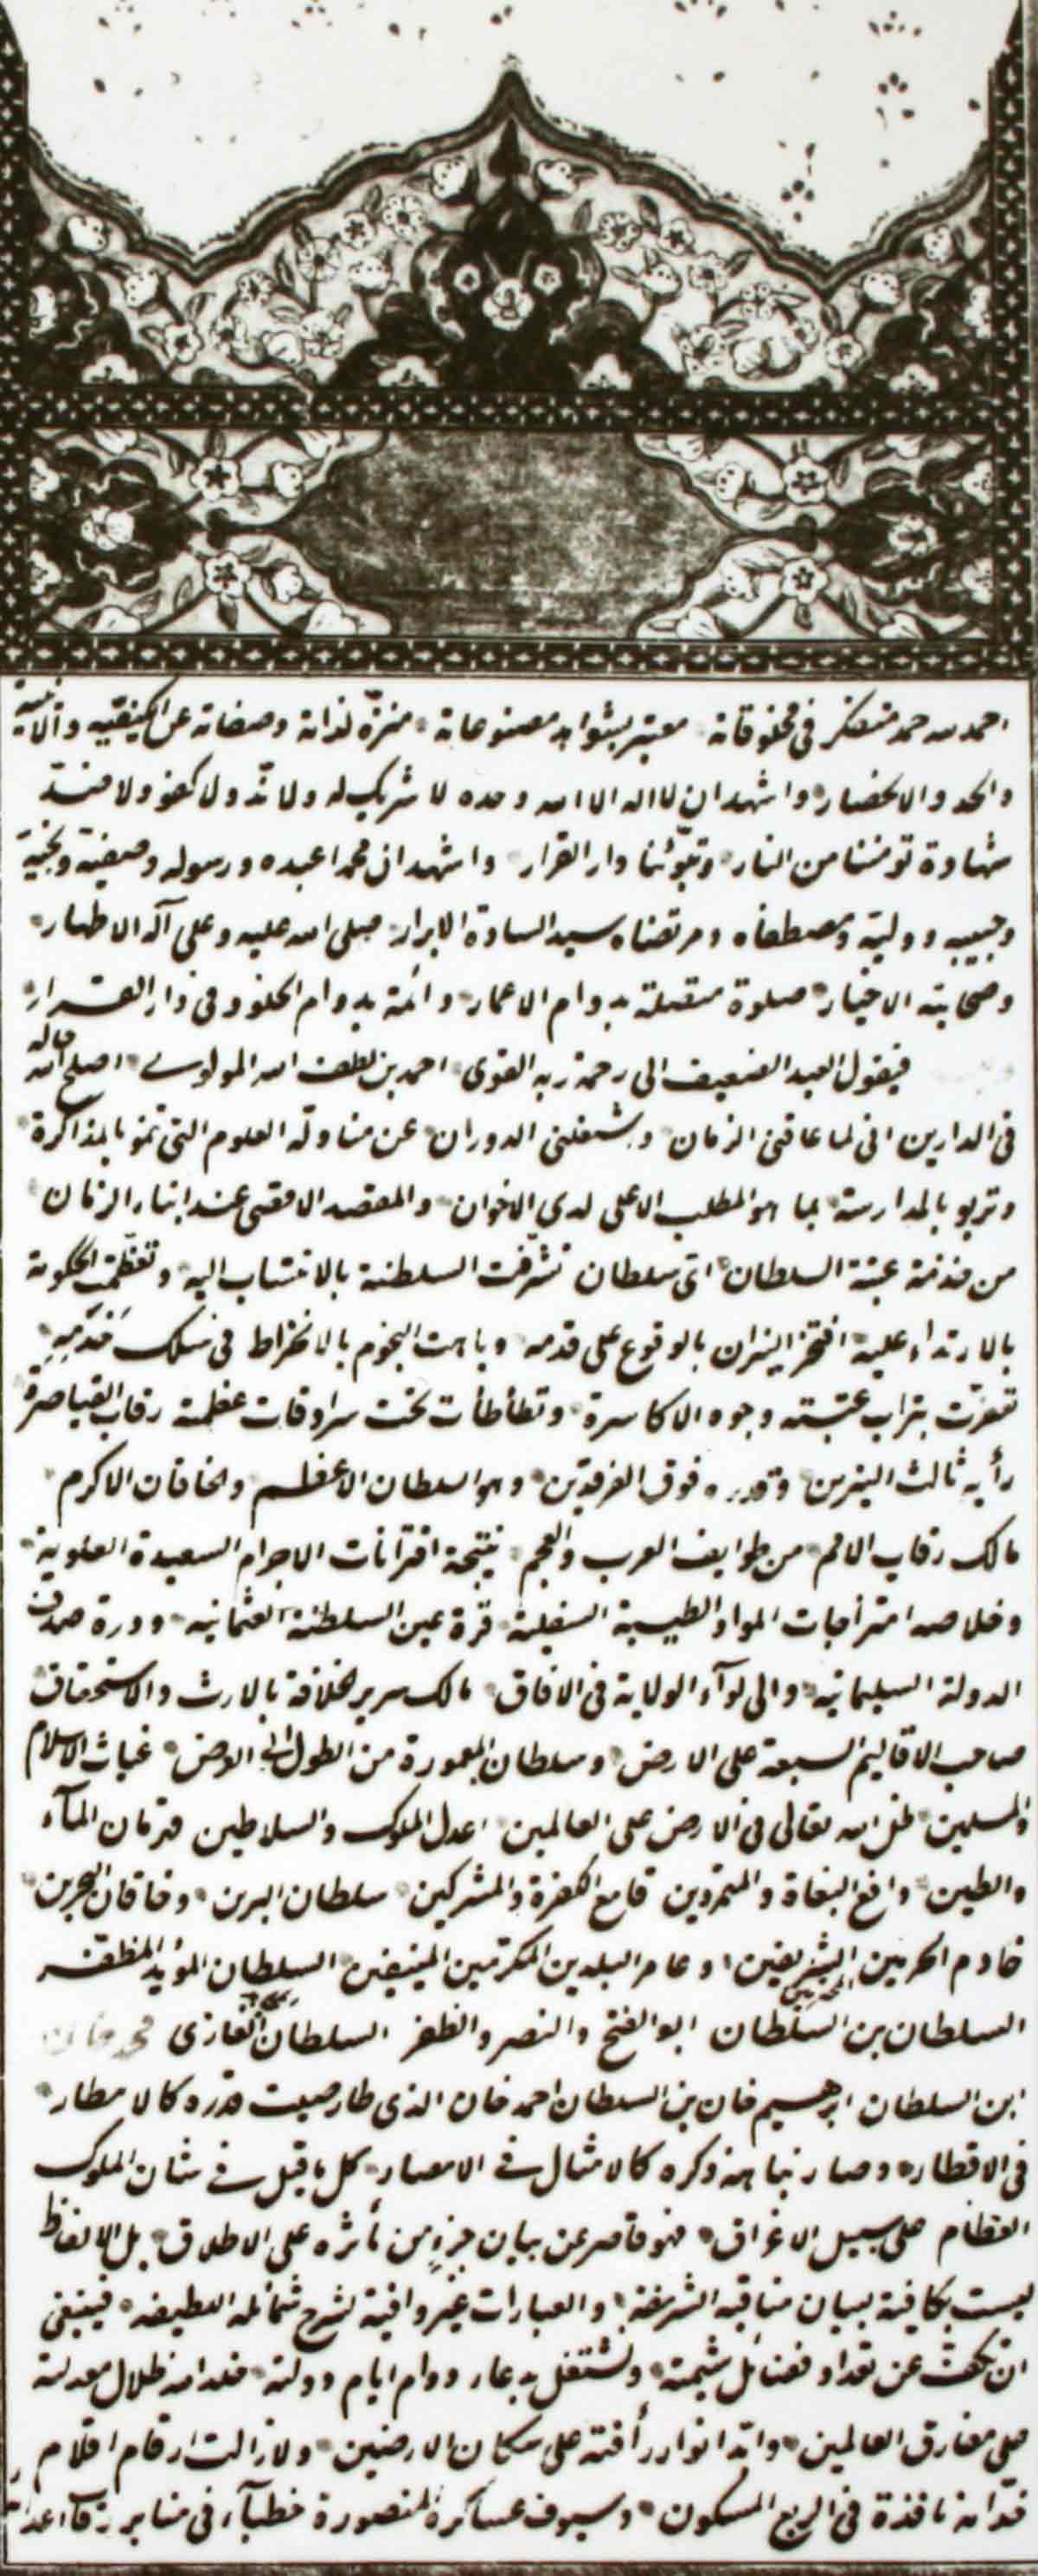 احمد لله حمد متفكر فى مخلوقاته معتبر بشواهد مصنوعاته منزّه لذاته وصفاته عن الكيفيّه والاينية
والحد والانحصار واشهد ان لا اله الا الله وحده لا شريك له ولا ندّ ولا كفو ولا ضدّ
شهادة تومننا من النار وتبوّئنا دار القرار واشهد ان محمدا عبده ورسوله وصفيه ونجيّه
وحبيبه ووليّه ومصطفاه ومرتضاه سيد السادة الابرار صلى الله عليه وعلى آله الاطهار
وصحابته الاخيار صلوة متصلة بدوام الاعمار دائمة بدوام الخلود فى دار القرار
فيقول العبد الضعيف الى رحمة ربه القوى احمد بن لطف الله المولوى اصلح الله حاله
فى الدارين انى لما عاقنى الزمان وشغلنى الدوران عن مناولة العلوم التى تنمو بالمذاكرة
وتربو بالمدارسة بما هو المطلب الاعلى لدى الاخوان والمقصد الاقصى عند ابناء الزمان
من خدمة عتبة السلطان اىّ سلطان تشرّفت السلطنة بالانتساب اليه وتعظّمت الحكومة
بالارتداء عليه افتخر النيران بالوقوع على قدمه وباهت النجوم بالانخراط فى سلك خدمه
تعفرت بتراب عتبته وجوه الاكاسرة وتطأطأت تحت سرادقات عظمته رقاب القياصرة
رأيه ثالث النيرين وقدره فوق الفرقدين وهو السلطان الاعظم والخاقان الاكرم
مالك رقاب الامم من طوايف العرب والعجم نتيجة اقترانات الاجرام السعيدة العلوية
وخلاصه امتزاجات المواد الطيبة السفلية قرة عين السلطنة العثمانيه ودرة صدف
الدولة السليمانيه والى لوآء الولاية فى الافاق مالك سرير الخلافة بالارث والاستحقاق
صاحب الاقاليم السبعة على الارض وسلطان المعمورة من الطول الى العرض غياث الاسلام
والمسلمين ظل الله تعالى فى الارض على العالمين اعدل الملوك والسلاطين قهرمان المآء
والطين دافع البغاة والمتمردين قامع الكفرة والمشركين سلطان البرين وخاقان البحرين
خادم الحرمين الشريفين وعامر البلدين المكرمين المنيفين السلطان المؤيد المظفر
السلطان بن السلطان ابو الفتح والنصر والظفر السلطان الغازى محمد خان
ابن السلطان ابرهيم خان بن السلطان احمد خان الذى طار صيت قدره كالامطار
فى الاقطار وصار نباهة ذكره كالامثال فى الامصار كل ما قيل فى شان الملوك
العظام على سبيل الاغراق فهو قاصر عن بيان جزء من مأثره على الاطلاق بل الالفاظ
ليست بكافية لبيان مناقبه الشريفة والعبارات غير وافية لشرح شمائله اللطيفه فينبغى
ان نكفّ عن تعداد فضائل شيمته ونشتغل بدعاء دوام ايام دولته خلد الله ظلال معدلته
على مفارق العالمين وابّد انوار رأفته على سكان الارضين ولا زالت ارقام اقلام
خدّامه نافذة فى الربع المسكون وسيوف عساكره المنصورة خطبآء فى منابر رقاب اعدائه